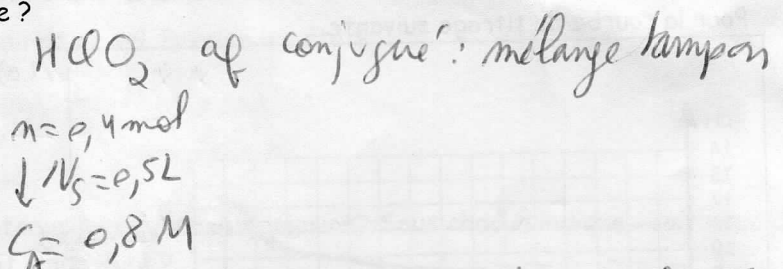 e?
HClO₂ af conjugué : mélange tampon
n = 0,4 mol
↓ /V_S = 0,5L
C_A = 0,8 M